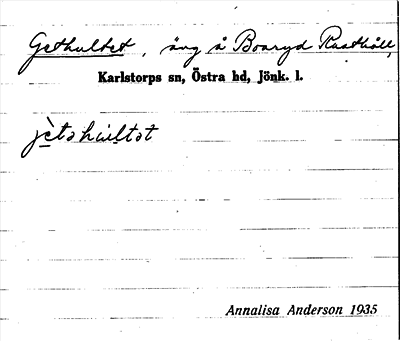 Gethultet, äng å Boaryd Rusthåll,
Karlstorps sn, Östra hd, Jönk. l.
jètəhultət
Annalisa Anderson 1935